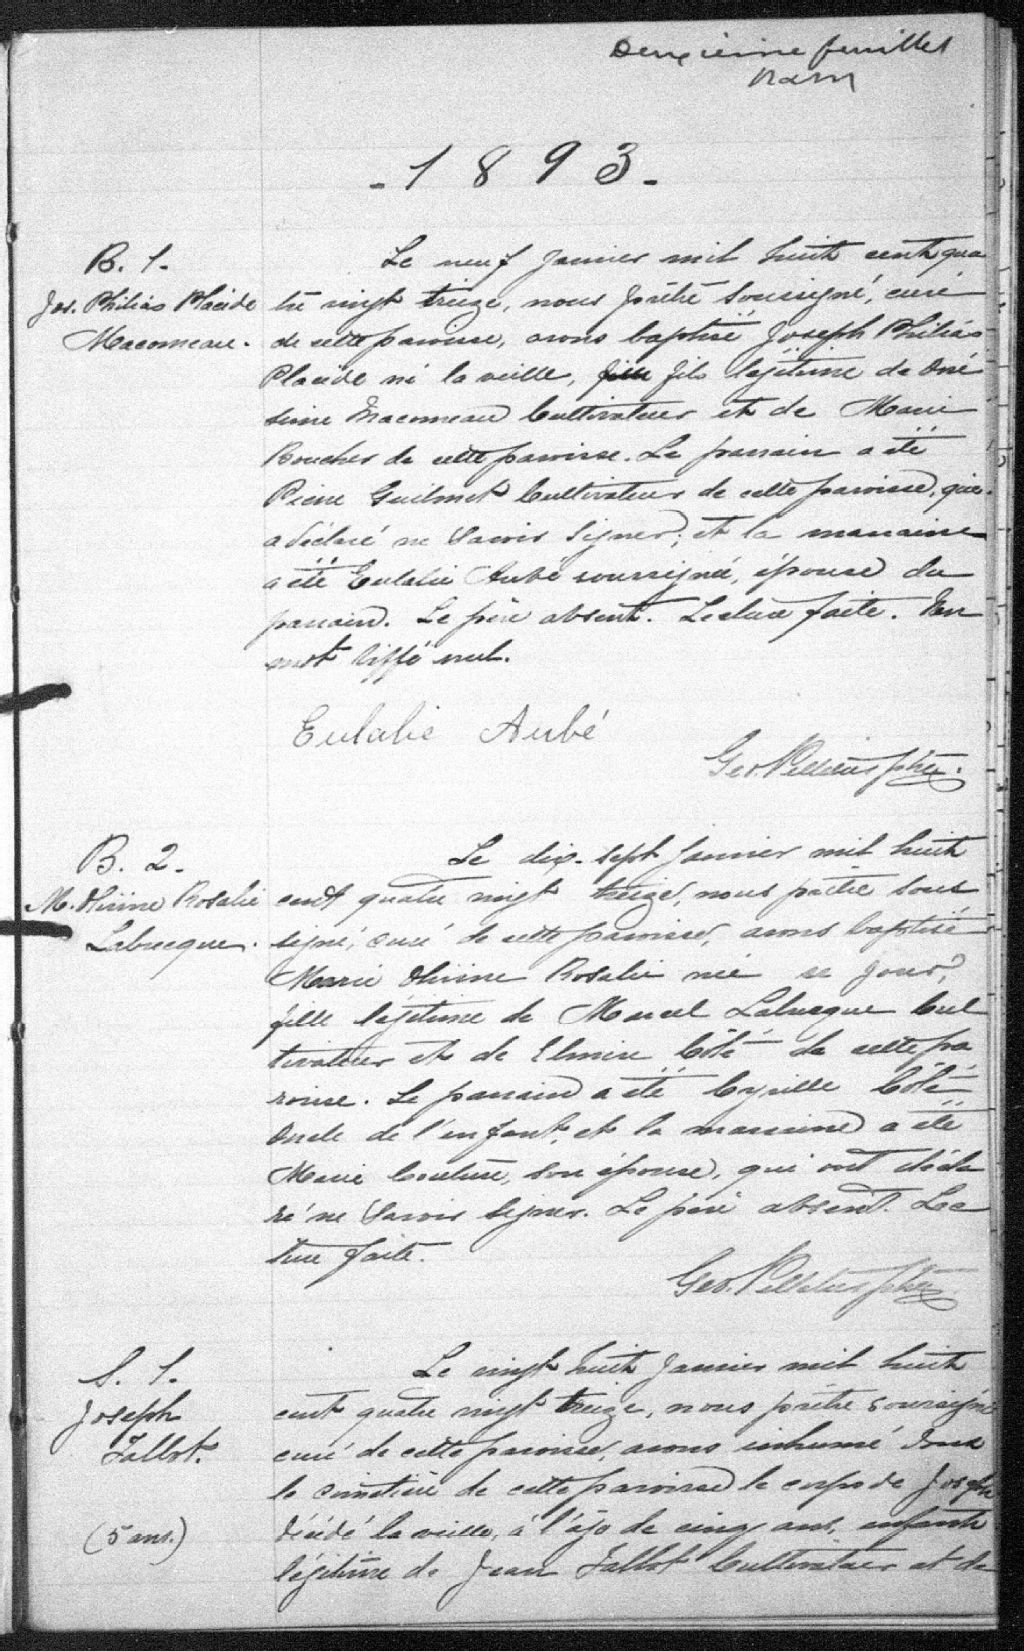 Deuxième feuillet
- 1 8 9 3 -
B. 1.
Jos. Philias Placide
Maconneau.
Le neuf janvier mil huit cent qua
tre vingt treize, nous prêtre soussigné, curé
de cette paroisse, avons baptisé Joseph Philias
Placide né la veille, fille fils légitime de Oné
sime Maconneau Cultivateur et de Marie
Boucher de cette paroisse. Le parrain a été
Pierre Guilmet Cultivateur de cette paroisse, qui
a déclaré ne savoir signer; et la marraine
a été Eulalie Aubé soussignée, épouse du
parrain. Le père absent. Lecture faite. Un
mot biffé nul.
Eulalie Aubé
Geo. Pelletier ptre.
B. 2.
M. Olivine Rosalie
Labrecque.
Le dix-sept janvier mil huit
cent quatre vingt treize, nous prêtre sous
signé, curé de cette paroisse, avons baptisé
Marie Olivine Rosalie née ce jour,
fille légitime de Marcel Labrecque Cul
tivateur et de Elmire Côté de cette pa
roisse. Le parrain a été Cyrille Côté
oncle de l'enfant, et la marraine a été
Marie Couture, son épouse, qui ont décla
ré ne savoir signer. Le père absent. Lec
ture faite.
Geo. Pelletier ptre
S. 1.
Joseph
Tallbot.
(5 ans.)
Le vingt huit janvier mil huit
cent quatre vingt treize, nous prêtre soussigné
curé de cette paroisse, avons inhumé dans
le cimetière de cette paroisse le corps de Joseph
décédé la veille, à l'âge de cinq ans, enfant
légitime de Jean Tallbot Cultivateur et de